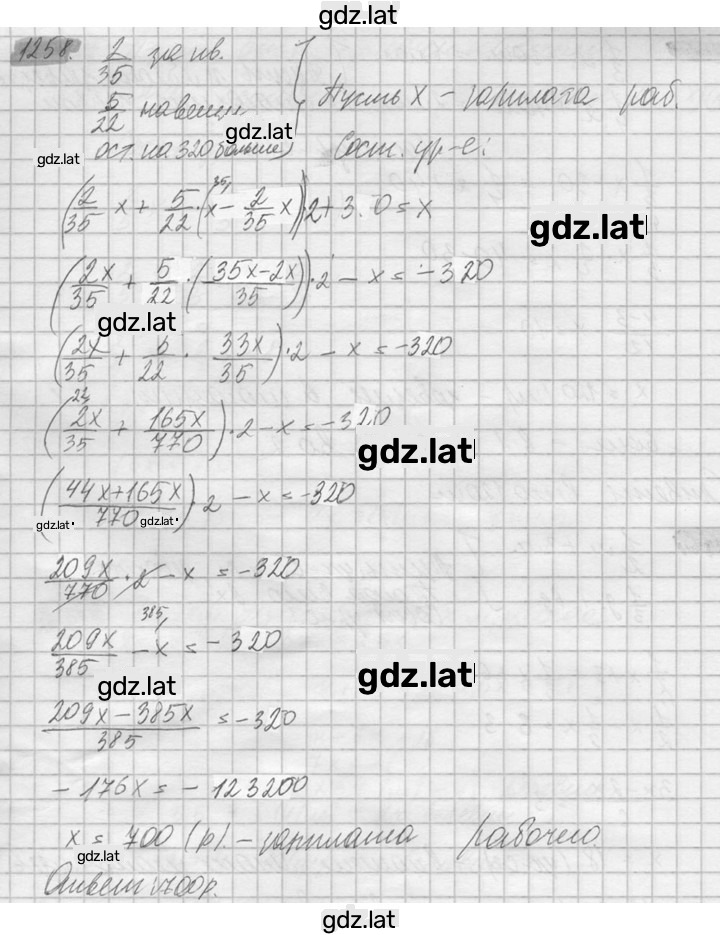 gdz.lat
1258. 2/35 за кв.
5/22 на вещи
ост. на 320 больше
gdz.lat
gdz.lat
Пусть x - зарплата раб.
Сост. ур-е:
(2/35 x + 5/22 · (x - 2/35 x)) · 2 + 320 = x
gdz.lat
(2x/35 + 5/22 · (35x-2x/35)) · 2 - x = -320
gdz.lat
(2x/35 + 5/22 · 33x/35) · 2 - x = -320
(2x/35 + 165x/770) · 2 - x = -320
gdz.lat
(44x+165x/770) · 2 - x = -320
gdz.lat
gdz.lat
209x/770 · 2 - x = -320
209x/385 - x = -320
gdz.lat
gdz.lat
209x - 385x/385 = -320
- 176x = - 123200
x = 700 (р). - зарплата рабочего.
gdz.lat
Ответ: 700р.
gdz.lat